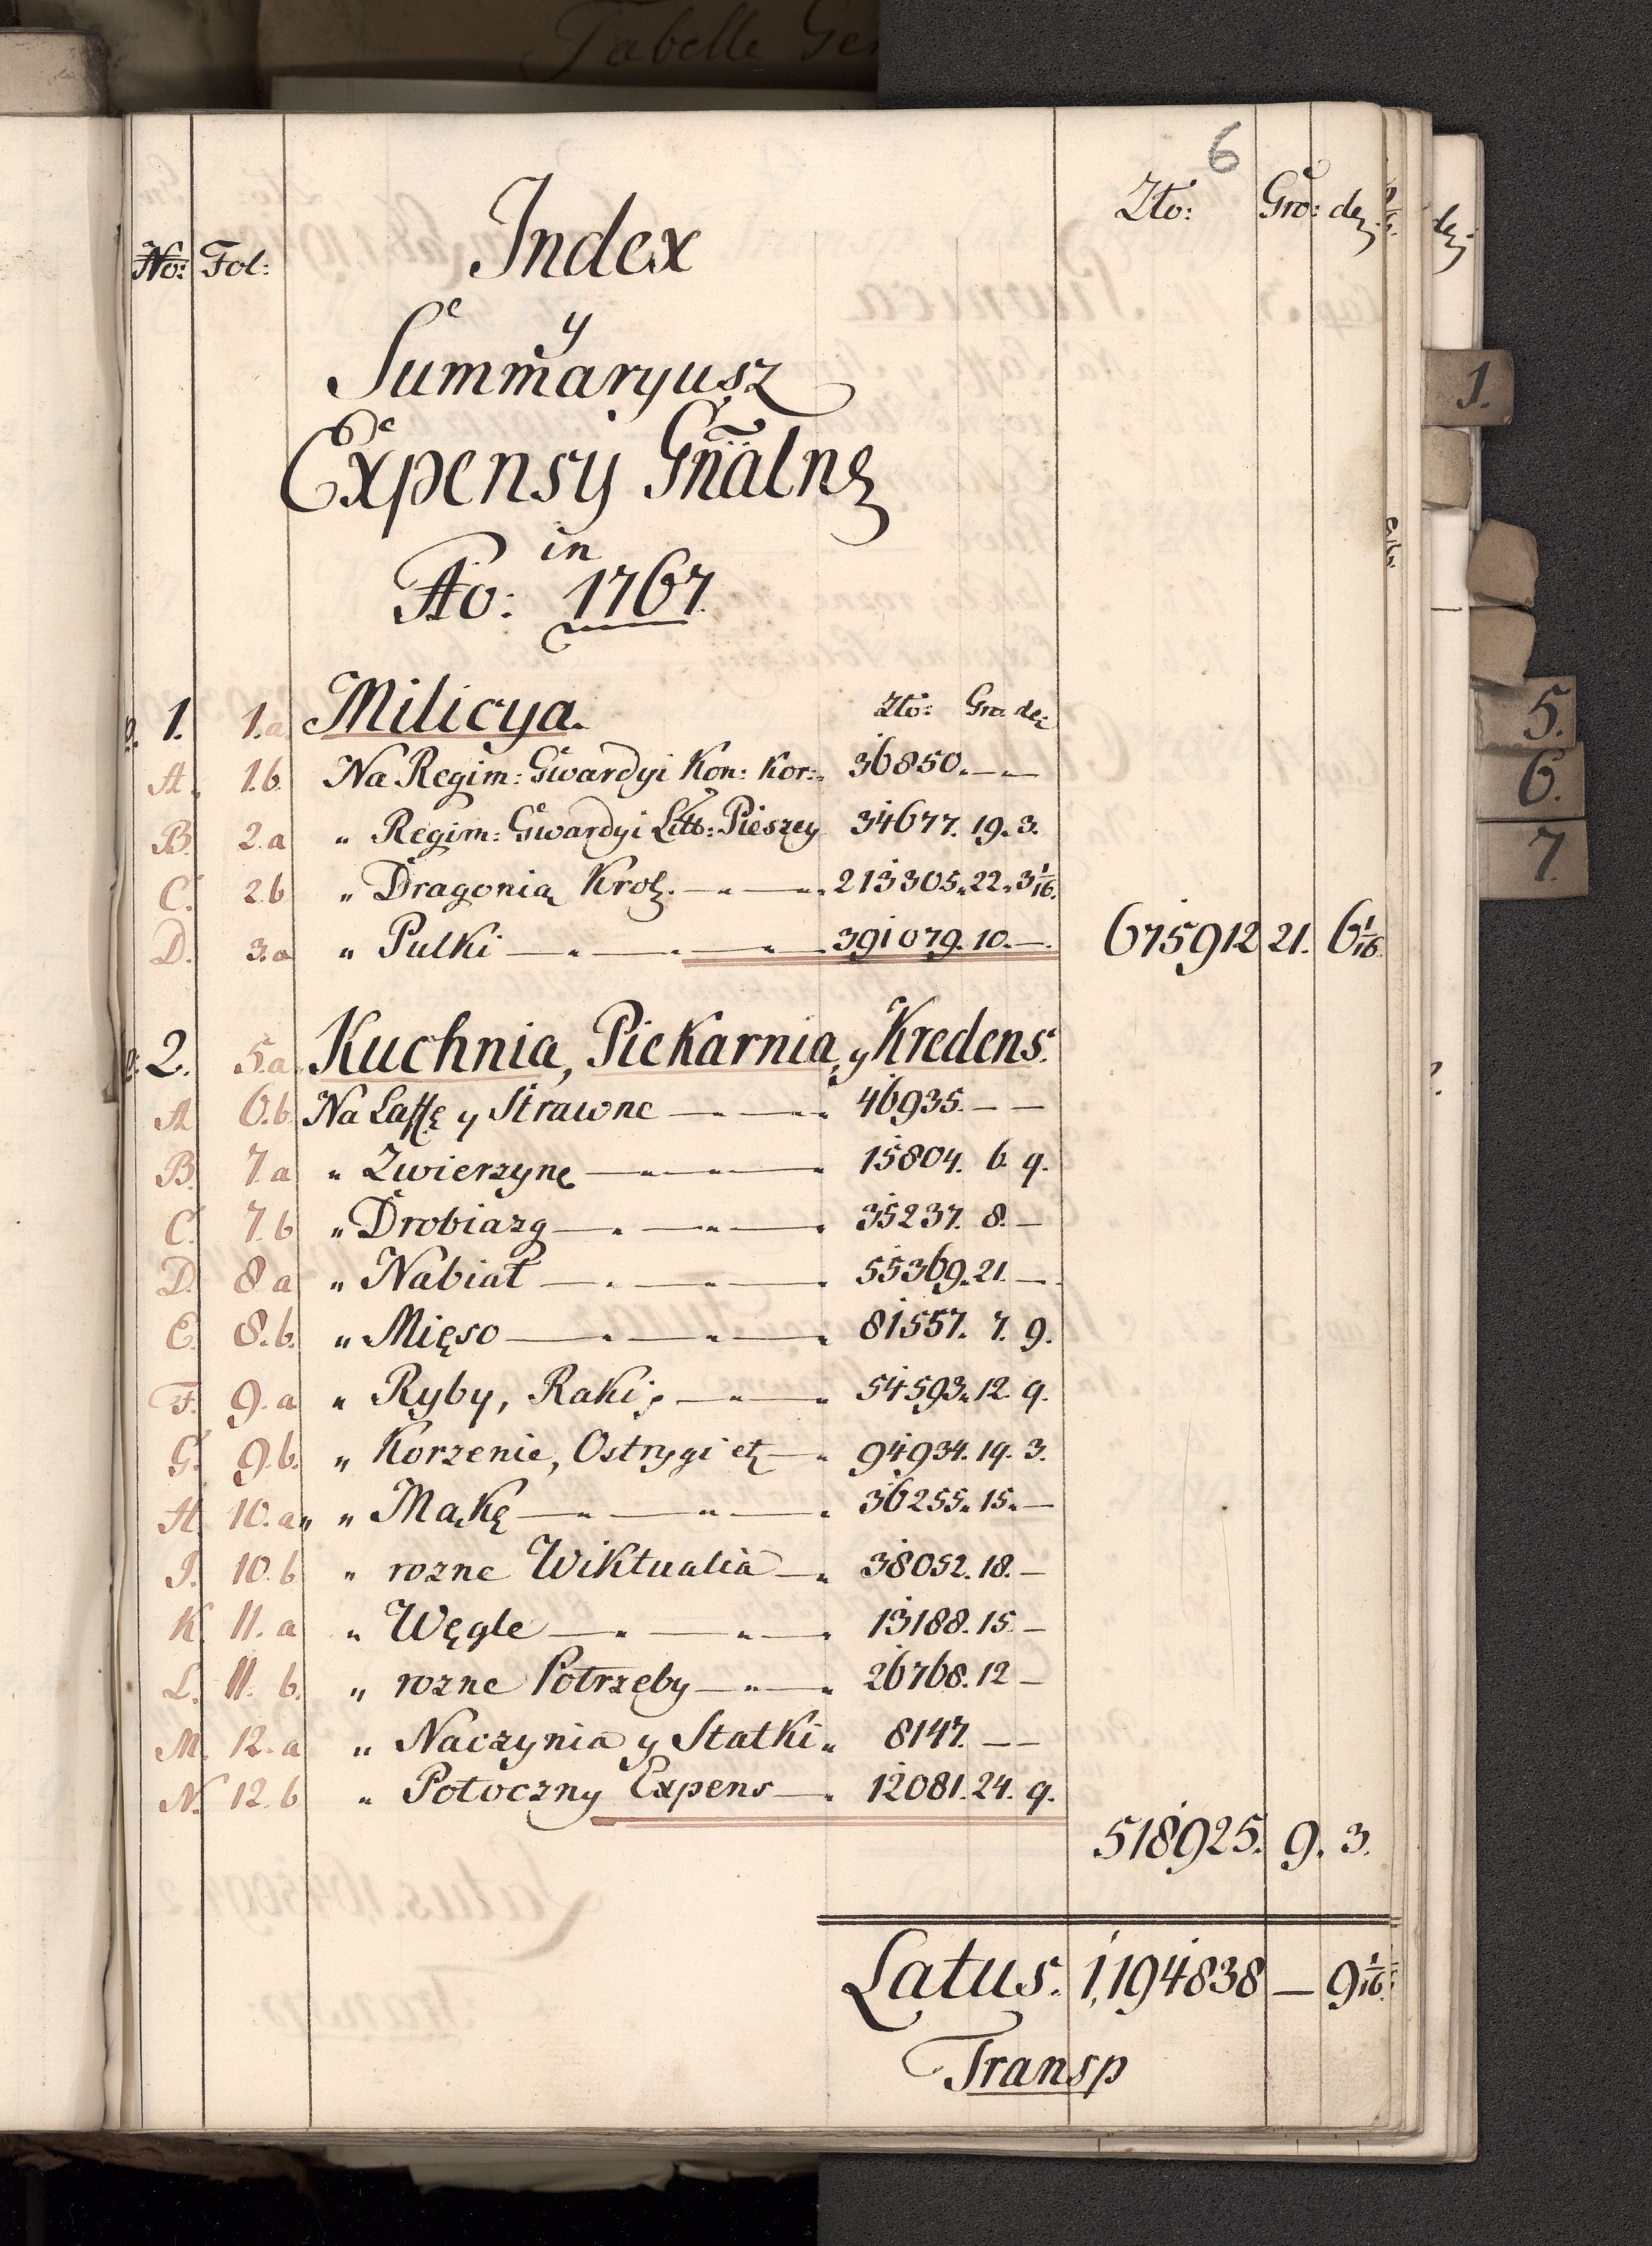 Tabelle Gen
6
Zło: Gro: dez
dez
No: Fol: Index
y
Summaryusz
Expensy Gnãlnę
in
Ao: 1767.
1. 1.a Milicya. Zło: Gro: dez
A. 1.b Na Regim: Gwardyi Kon: Kor: 36850. — —
B. 2.a „ Regim: Gwardyi Litt: Pieszey 34677. 19. 3.
C. 2.b „ Dragonią Krolę. 213305. 22. 3 1/16.
D. 3.a „ Pulki 391079. 10. — 675912 21. 6 1/16.
2. 5.a Kuchnia, Piekarnia, y Kredens.
A 6.b Na Laffę y Strawne 46935. — —
B. 7.a „ Zwierzynę 15804. 6. 9.
C. 7.b „ Drobiazg 35237. 8. —
D. 8.a „ Nabiał 55369. 21. —
E. 8.b. „ Mięso 81557. 7. 9.
F. 9.a „ Ryby, Raki, 54593. 12. 9.
G. 9.b. „ Korzenie, Ostrygi etz 94934. 19. 3.
H. 10.a „ Mąkę 36255. 15. —
I. 10.b „ rozne Wiktualia 38052. 18. —
K. 11.a „ Węgle 13188. 15. —
L. 11.b. „ rozne Potrzeby 26768. 12 —
M. 12.a „ Naczynia y Statki 8147. — —
N. 12.b „ Potoczny Expens 12081. 24. 9.
518925. 9. 3.
Latus. 1,194838 — 9 1/16.
Transp
1.
5.
6.
7.